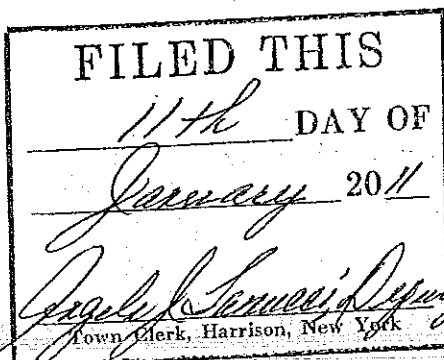 FILED THIS
11th DAY OF
January 2011
Town Clerk, Harrison, New York